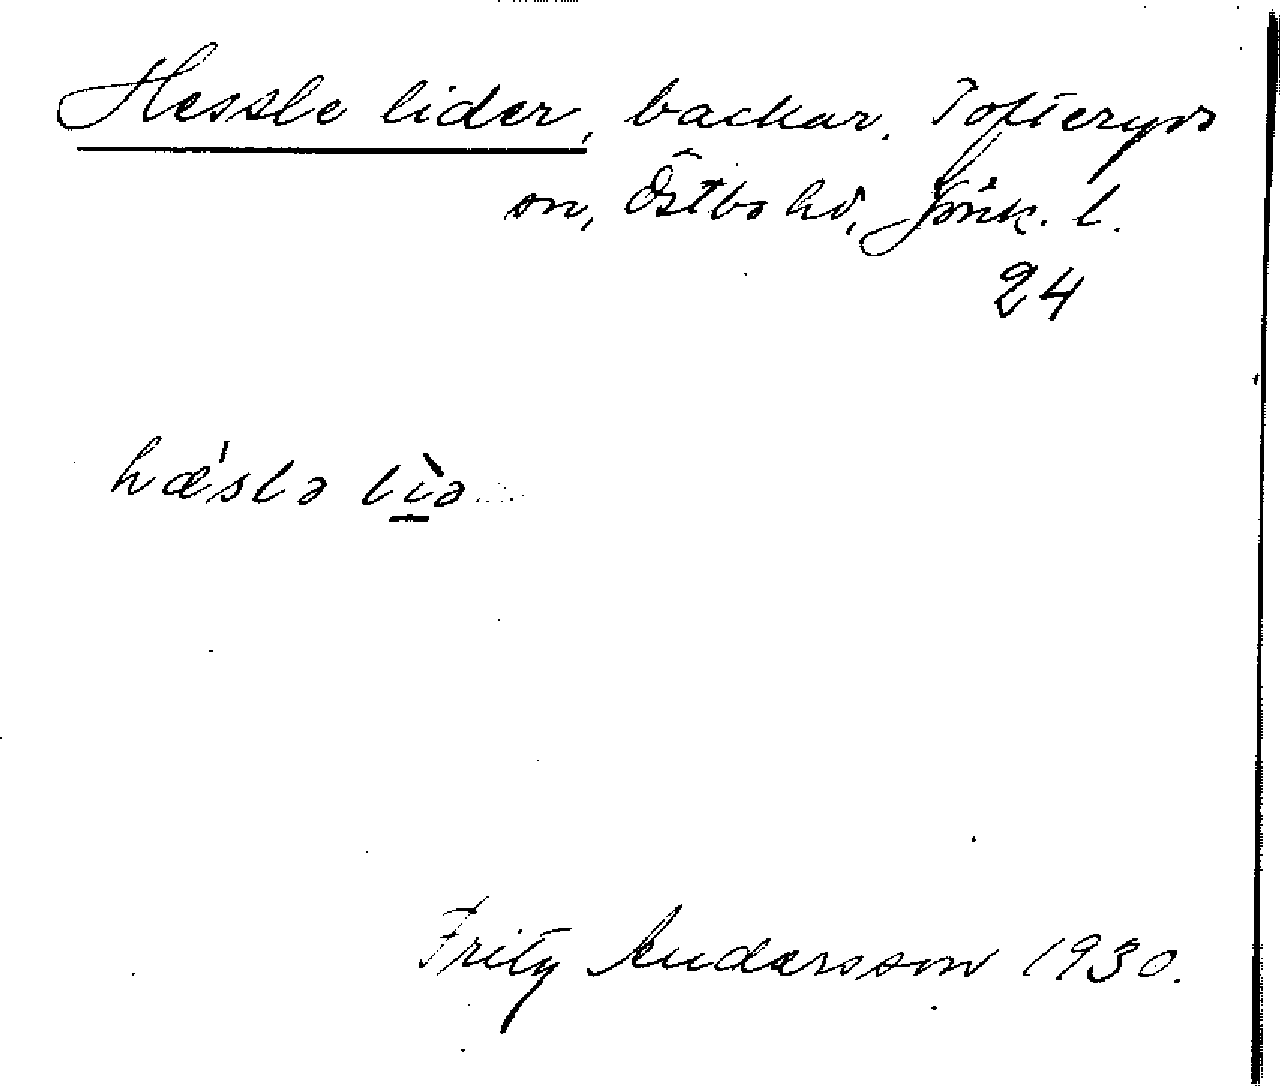 Hessle lider, backar. Tofteryds
sn, Östbo hd, Jönk. l.
24
hæ'slə lìə
Fritz Andersson 1930.